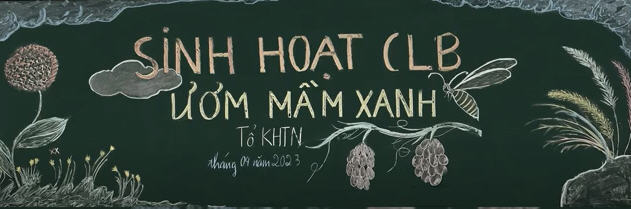 SINH HOẠT CLB
ƯƠM MẦM XANH
Tổ KHTN
tháng 09 năm 2023